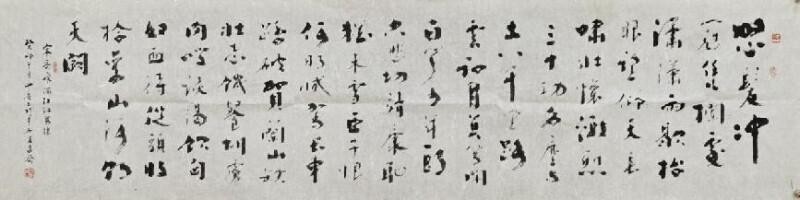 怒髮冲
冠凭闌處
潇潇雨歇抬
眼望仰天長
嘯壯懷激烈
三十功名塵與
土八千里路
雲和月莫等閒
白了少年頭
空悲切靖康恥
猶未雪臣子恨
何時滅駕長車
踏破賀蘭山缺
壯志饑餐胡虜
肉笑談渴飲匈
奴血待從頭收
拾舊山河朝
天闕
宋岳飛滿江紅